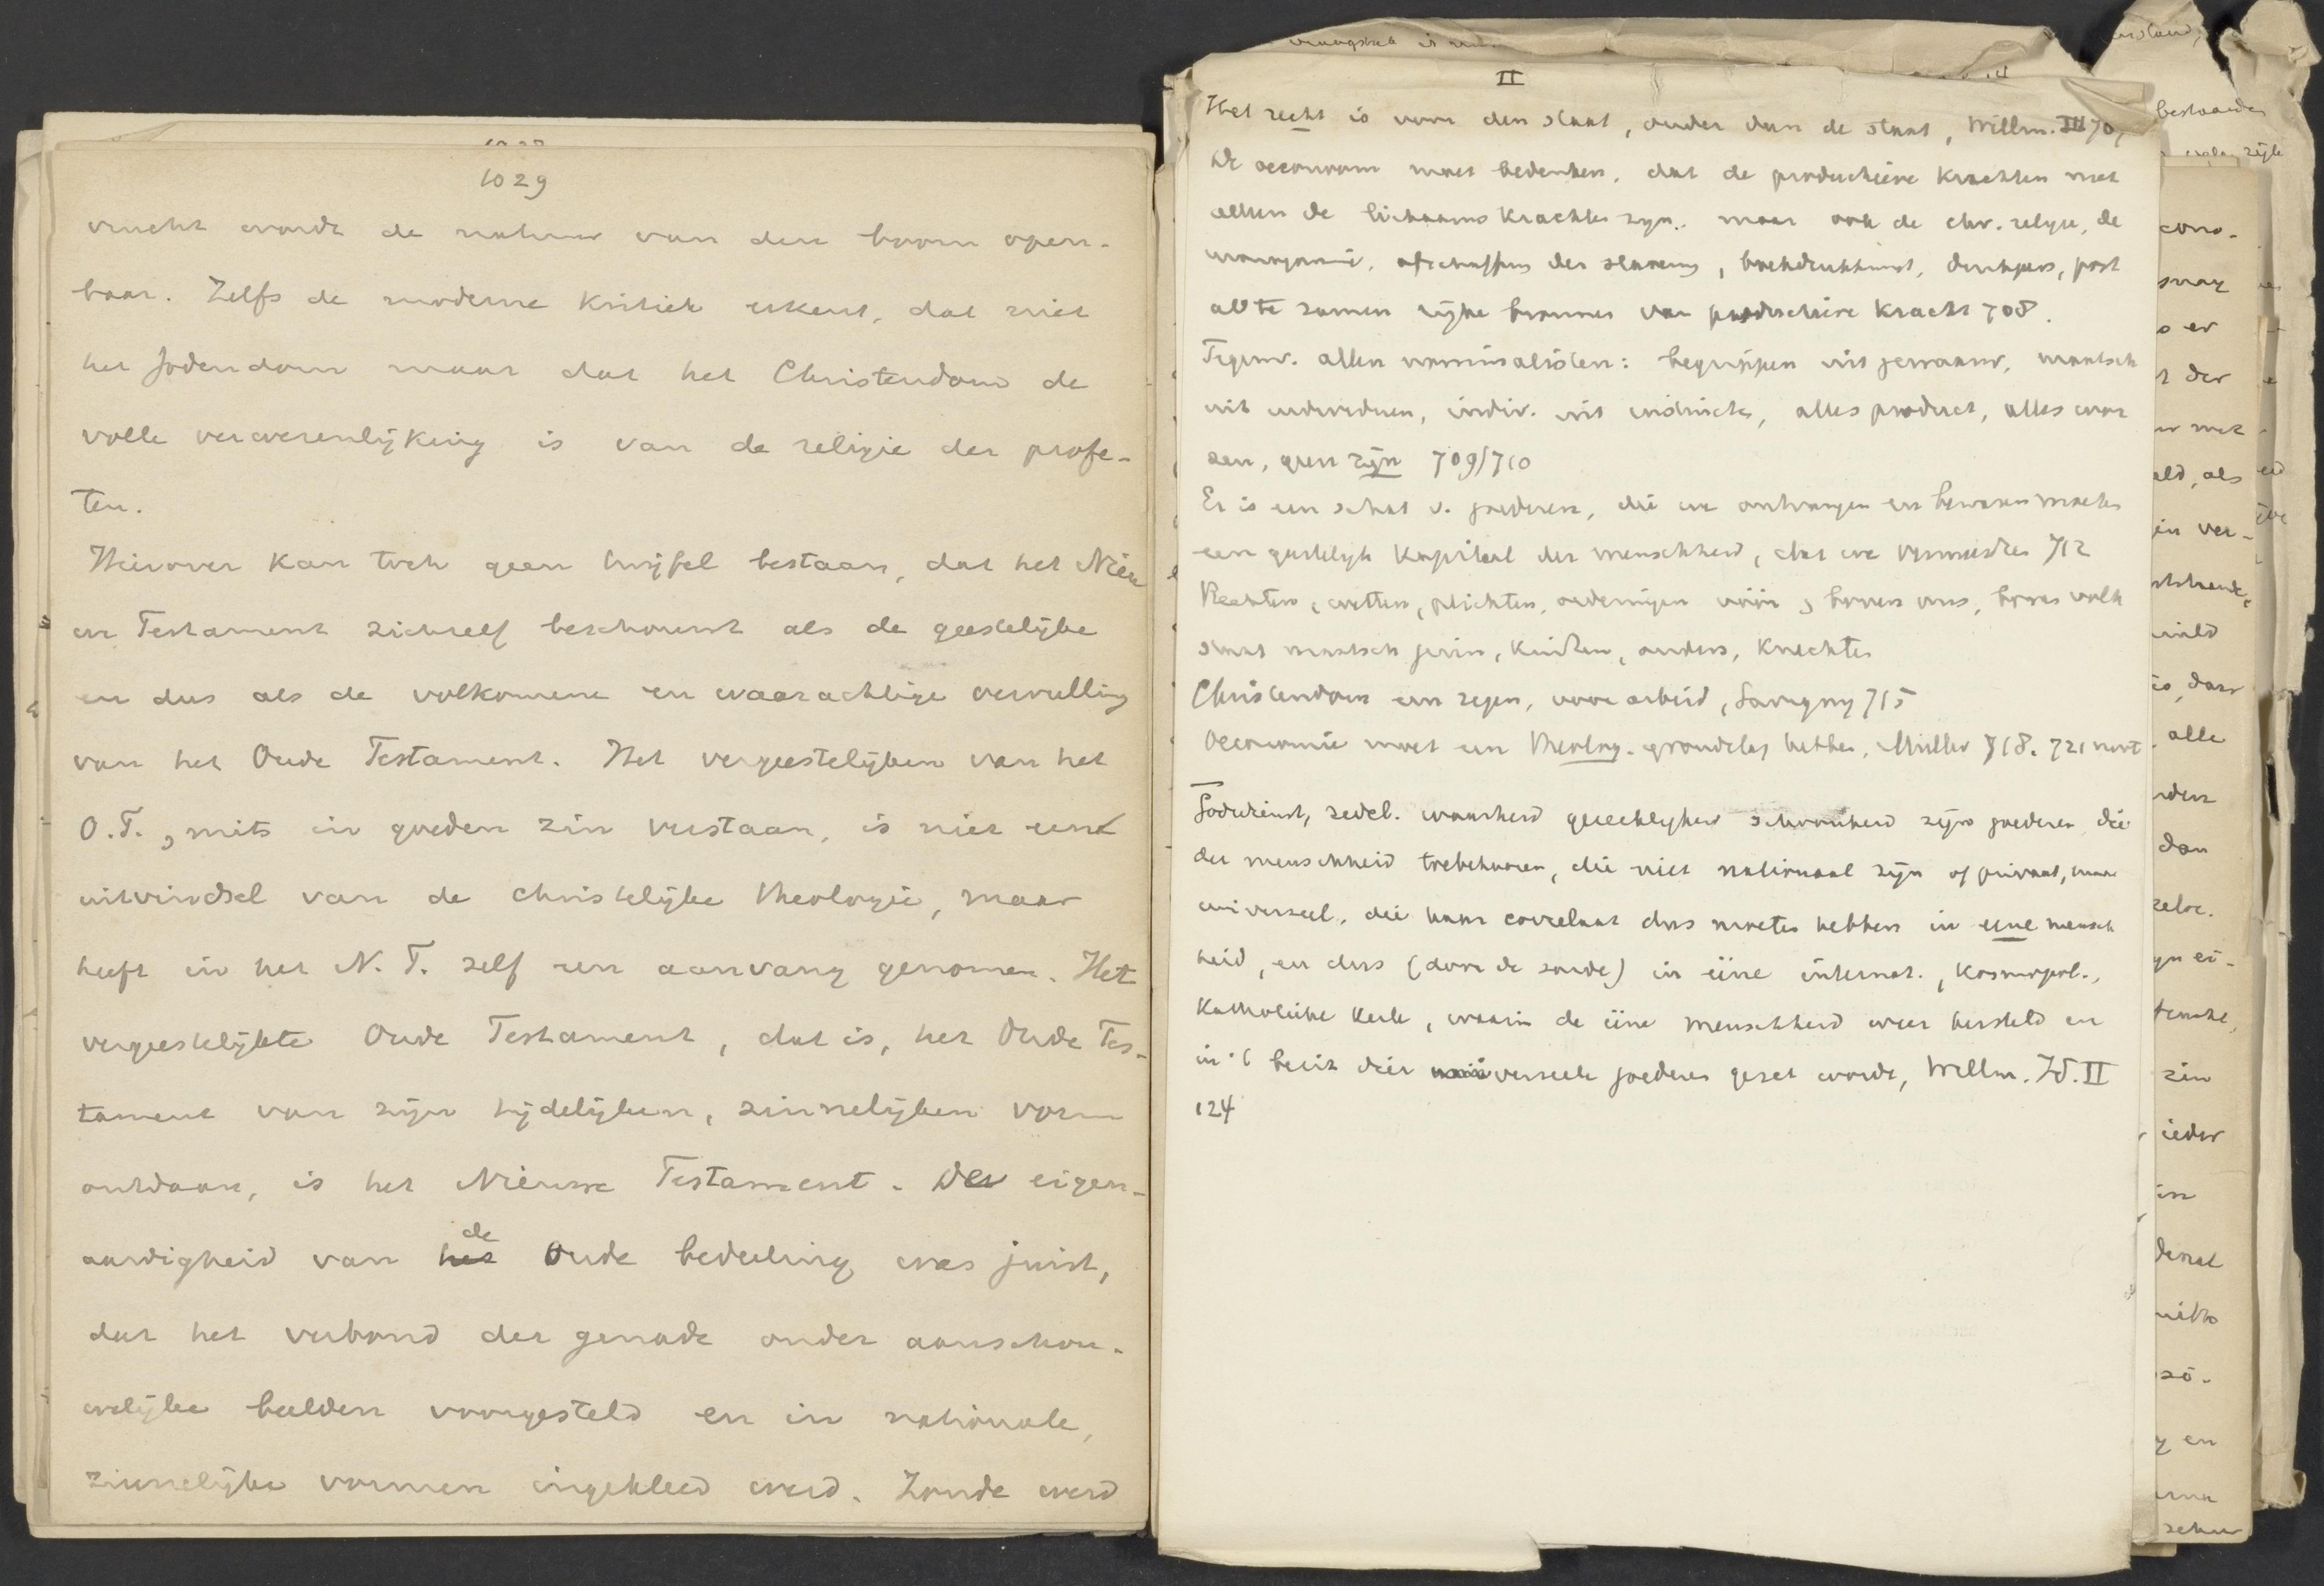 1029
vrucht wordt de natuur van den boom open-
baar. Zelfs de moderne kritiek erkent, dat niet
het Jodendom maar dat het Christendom de
volle verwezenlijking is van de religie der profe-
ten.
Hierover kan toch geen twijfel bestaan, dat het Nieu
we Testament zichzelf beschouwt als de geestelijke
en dus als de volkomene en waarachtige vervulling
van het Oude Testament. Het vergeestelijken van het
O.T., mits in goeden zin verstaan, is niet een
uitvindsel van de christelijke theologie, maar
heeft in het N. T. zelf een aanvang genomen. Het
vergeestelijkte Oude Testament, dat is, het Oude Tes-
tament van zijn tijdelijken, zinnelijken vorm
ontdaan, is het Nieuwe Testament. De eigen-
aardigheid van het de Oude bedeeling was juist,
dat het verbond der genade onder aanschou-
welijke beelden voorgesteld en in nationale,
zinnelijke vormen ingekleed werd. Zonde werd
II
Het recht is voor den staat, ouder dan de staat, Willm. III 707
De oeconoom moet bedenken, dat de productieve krachten niet
alleen de lichaamskrachten zijn, maar ook de chr. religie, de
monogamie, afschaffing der slavernij, boekdrukkunst, drukpers, post
al te zamen rijke bronnen van productieve kracht 708.
Tegenw. allen nominalisten: begrippen uit gewaarw, maatsch
uit individuen, indiv. uit instincten, alles product, alles wor
den, geen zijn 709/710
Er is een schat v. goederen, die we ontvangen en bewaren moeten
een geestelijk kapitaal der menschheid, dat we vermeerderen 712
Rechten, wetten, plichten, ordeningen vóór en boven ons, boven volk
staat maatsch gezin, kinderen, ouders, knechten
Christendom een zegen, voor arbeid, Savigny 715
Oeconomie moet een theolog. grondslag hebben, Müller 718. 721 noot
Godsdienst, zedel. waarheid gerechtigheid schoonheid zijn goederen die
der menschheid toebehooren, die niet nationaal zijn of privaat, maar
universeel, die haar correlaat dus moeten hebben in eene mensch
heid, en dus (door de zonde) in ééne internat., kosmopol.,
katholieke kerk, waarin de ééne menschheid weer hersteld en
in 't bezit dier universeele goederen gezet wordt, Willm. Id. II
124